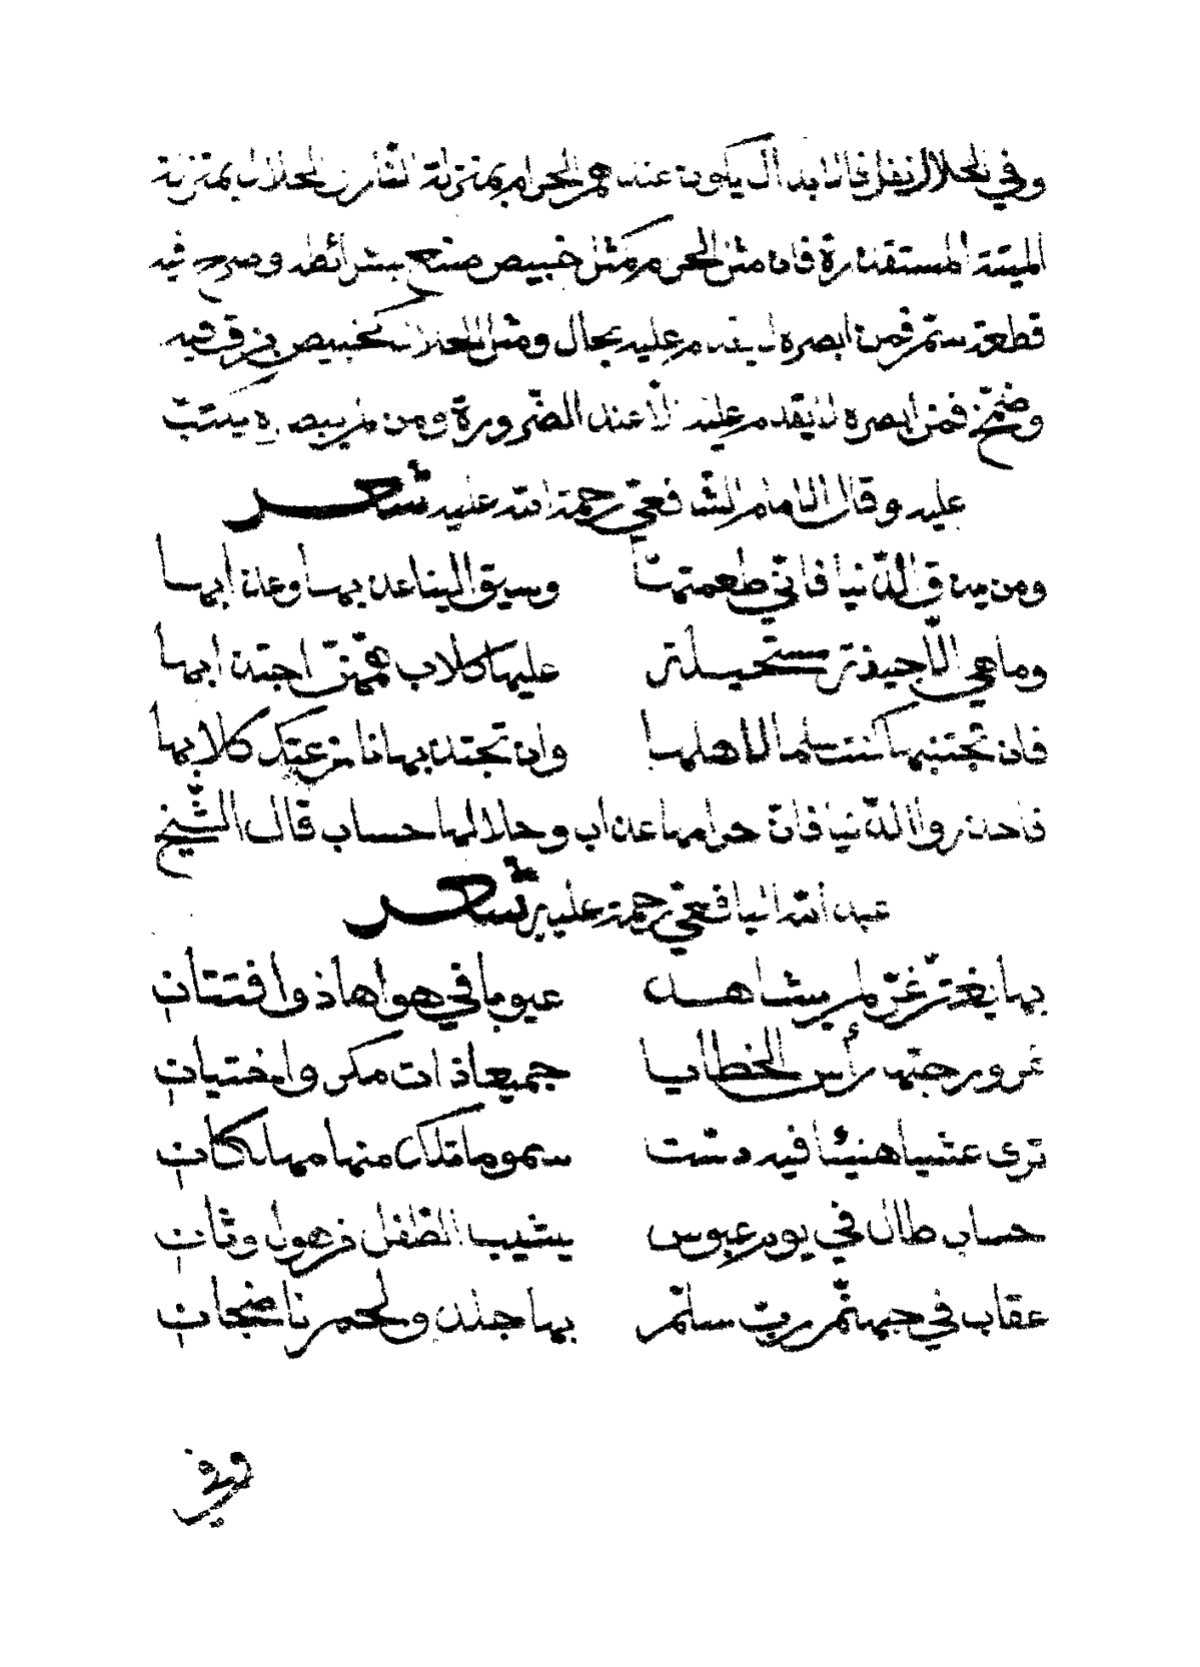 وفي الحلال نفل فالابدال يكون عندهم الحرام بمنزلة النار والحلال بمنزلة
الميتة المستقذرة فان مثل الحرام كمثل خبيص صنع بشرائطه وطرح فيه
قطعة سم فمن ابصره لا يقدم عليه بحال ومثل الحلال كخبيص بزق فيه
ومخ فمن ابصره لا يقدم عليه الا عند الضرورة ومن لم يبصره يثب
عليه وقال الامام الشافعي رحمة الله عليه شعر
ومن يذق الدنيا فاني طعمتها وسيق الينا عذبها وعذابها
وما هي الا جيفة مستحيلة عليها كلاب همهن اجتذابها
فان تجتنبها كنت سلما لاهلها وان تجتذبها نازعتك كلابها
فاحذروا الدنيا فان حرامها عذاب وحلالها حساب قال الشيخ
عبد الله اليافعي رحمة عليه شعر
بها يغتر غر لم يشاهد عيوبا في هواها ذو افتتان
غرور حبها رأس الخطايا جميعا ذات مكر واختيان
ترى عشيا هنيئا فيه دست سموما تلك منها مهلكات
حساب طال في يوم عبوس يشيب الطفل من هول وثان
عقاب في جهنم رب سلم بها جلد ولحم ناضجات